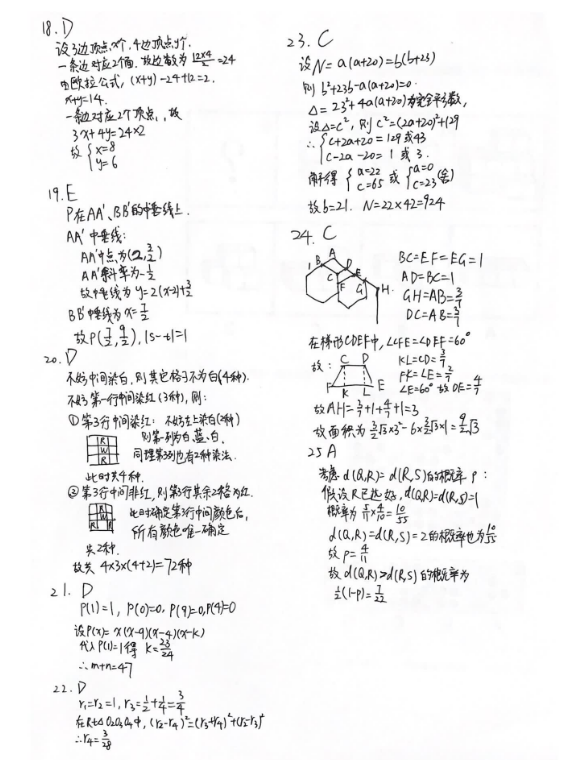 18. D
设3边顶点x个, 4边顶点y个.
一条边对应2个面. 故边数为 12×4/2 = 24
由欧拉公式, (x+y)-24+12=2.
x+y=14.
一条边对应2个顶点, 故
3x+4y=24×2
故 { x=8
y=6
19. E
P在AA'、BB'的中垂线上.
AA'中垂线:
AA'中点为(2, 3/2)
AA'斜率为-1/2
故中垂线为 y=2(x-2)+3/2
BB'中垂线为 x=7/2
故P(7/2, 9/2), |s-t|=1
20. D
不妨中间染白, 则其它格子不为白(4种).
不妨第一行中间染红(3种), 则:
①第3行中间染红: 不妨左上染白(2种)
R
W
R
则第一列为白、蓝、白.
同理第3列也有2种染法.
此时共4种.
②第3行中间非红, 则第3行其余2格为红.
R
W
R R
此时确定第3行中间颜色后,
所有颜色唯一确定
共2种.
故共 4×3×(4+2)=72种
21. D
P(1)=1, P(0)=0, P(9)=0, P(4)=0
设P(x)= x(x-9)(x-4)(x-k)
代入P(1)=1得 k=23/24
∴m+n=47
22. D
r₁=r₂=1, r₃=1/2+1/4=3/4
∴r₄=3/28
23. C
设N=a(a+20)=b(b+23)
则 b²+23b-a(a+20)=0.
Δ=23²+4a(a+20)为完全平方数,
设Δ=c², 则 c²=(2a+20)²+129
∴ { c+2a+20=129或43
c-2a-20=1 或 3.
解得 { a=22 c=65 或 { a=0 c=23 (舍)
故b=21. N=22×42=924
24. C
A B C D E F G H
BC=EF=EG=1
AD=BC=1
GH=AB=3/7
DC=AB=3/7
在梯形CDEF中, ∠CFE=∠DEF=60°
故: C D F K L E
KL=CD=3/7
FK=LE=2/7
∠E=60° 故DE=4/7
故AH=3/7+1+4/7+1=3
25 A
考虑d(Q,R)=d(R,S)的概率p:
假设R已选好, d(Q,R)=d(R,S)=1
概率为 5/11×4/10=10/55
d(Q,R)=d(R,S)=2的概率也为10/55
故 p=4/11
故d(Q,R)>d(R,S)的概率为
1/2(1-p)=7/22